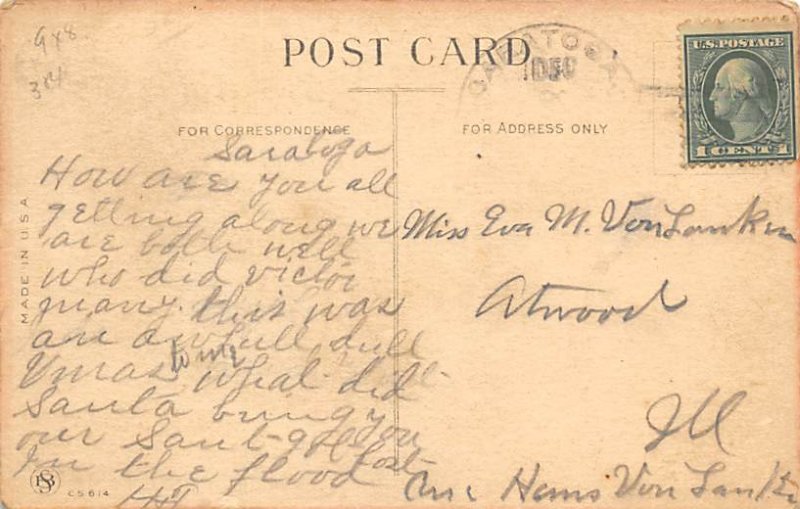 948
384
POST CARD
SARATOGA
DEC
U.S. POSTAGE
1 CENT 1
FOR CORRESPONDENCE
FOR ADDRESS ONLY
MADE IN U.S.A
Saratoga
How are you all
getting along we
are both well
who did victor
marry. this was
an awfull dull
Xmas to me what did
Santa bring you
our Sant got
lost
In the flood
Miss Eva M. Von Lanken
Atwood
Ill
Hans Von Lanken
CS 614